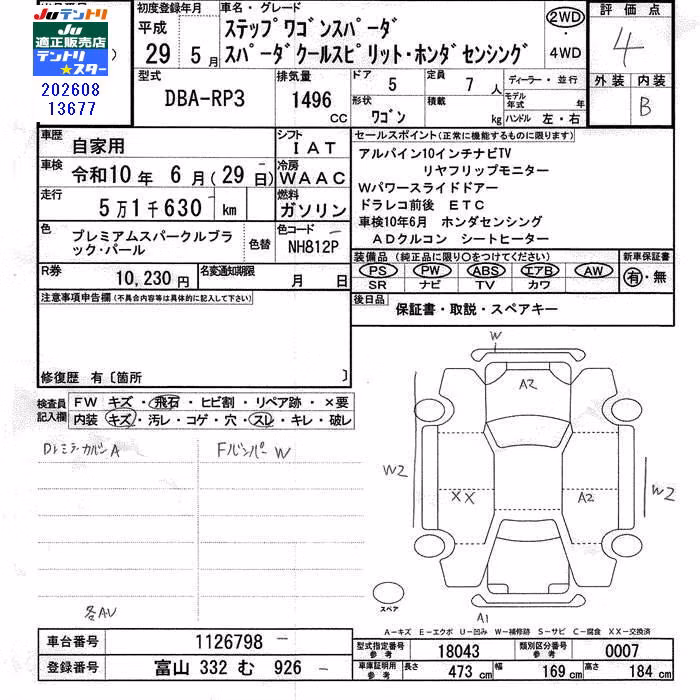 JU テントリ
JU 適正販売店
テントリ★スター
202608
13677
初度登録年月 車名・グレード 評価点
平成 29 年 5 月
ステップワゴンスパーダ
スパーダクールスピリット・ホンダセンシング
2WD・4WD
4
外装 内装
B
型式 DBA-RP3
排気量 1496 CC
ドア 5 定員 7 人
形状 ワゴン 積載 kg
ディーラー・並行
モデル年式 年
ハンドル 左・右
車歴 自家用
シフト IAT
車検 令和10年 6月(29日)
冷房 WAAC
走行 5万1千630 km
燃料 ガソリン
色 プレミアムスパークルブラック・パール
色替
色コード NH812P
R券 10,230円
名変通知期限 月 日
セールスポイント(正常に機能するものに限ります)
アルパイン10インチナビTV
リヤフリップモニター
Wパワースライドドアー
ドラレコ前後 ETC
車検10年6月 ホンダセンシング
ADクルコン シートヒーター
装備品 (純正品に限り〇をつけてください) 新車保証書
PS PW ABS エアB AW 有・無
SR ナビ TV カワ
後日品 保証書・取説・スペアキー
注意事項申告欄(不具合内容等は具体的に記入して下さい)
修復歴 有〔箇所 〕
検査員記入欄
FW キズ・飛石・ヒビ割・リペア跡・×要
内装 キズ・汚レ・コゲ・穴・スレ・キレ・破レ
DレミラーカバーA FバンパーW
各AU
W
A2
W2
XX
A2
W2
A1
スペア
A−キズ E−エクボ U−凹み W−補修跡 S−サビ C−腐食 XX−交換済
車台番号 1126798
登録番号 富山 332 む 926
型式指定番号 参考 18043 類別区分番号 参考 0007
車庫証明用 参考 長さ 473 cm 幅 169 cm 高さ 184 cm